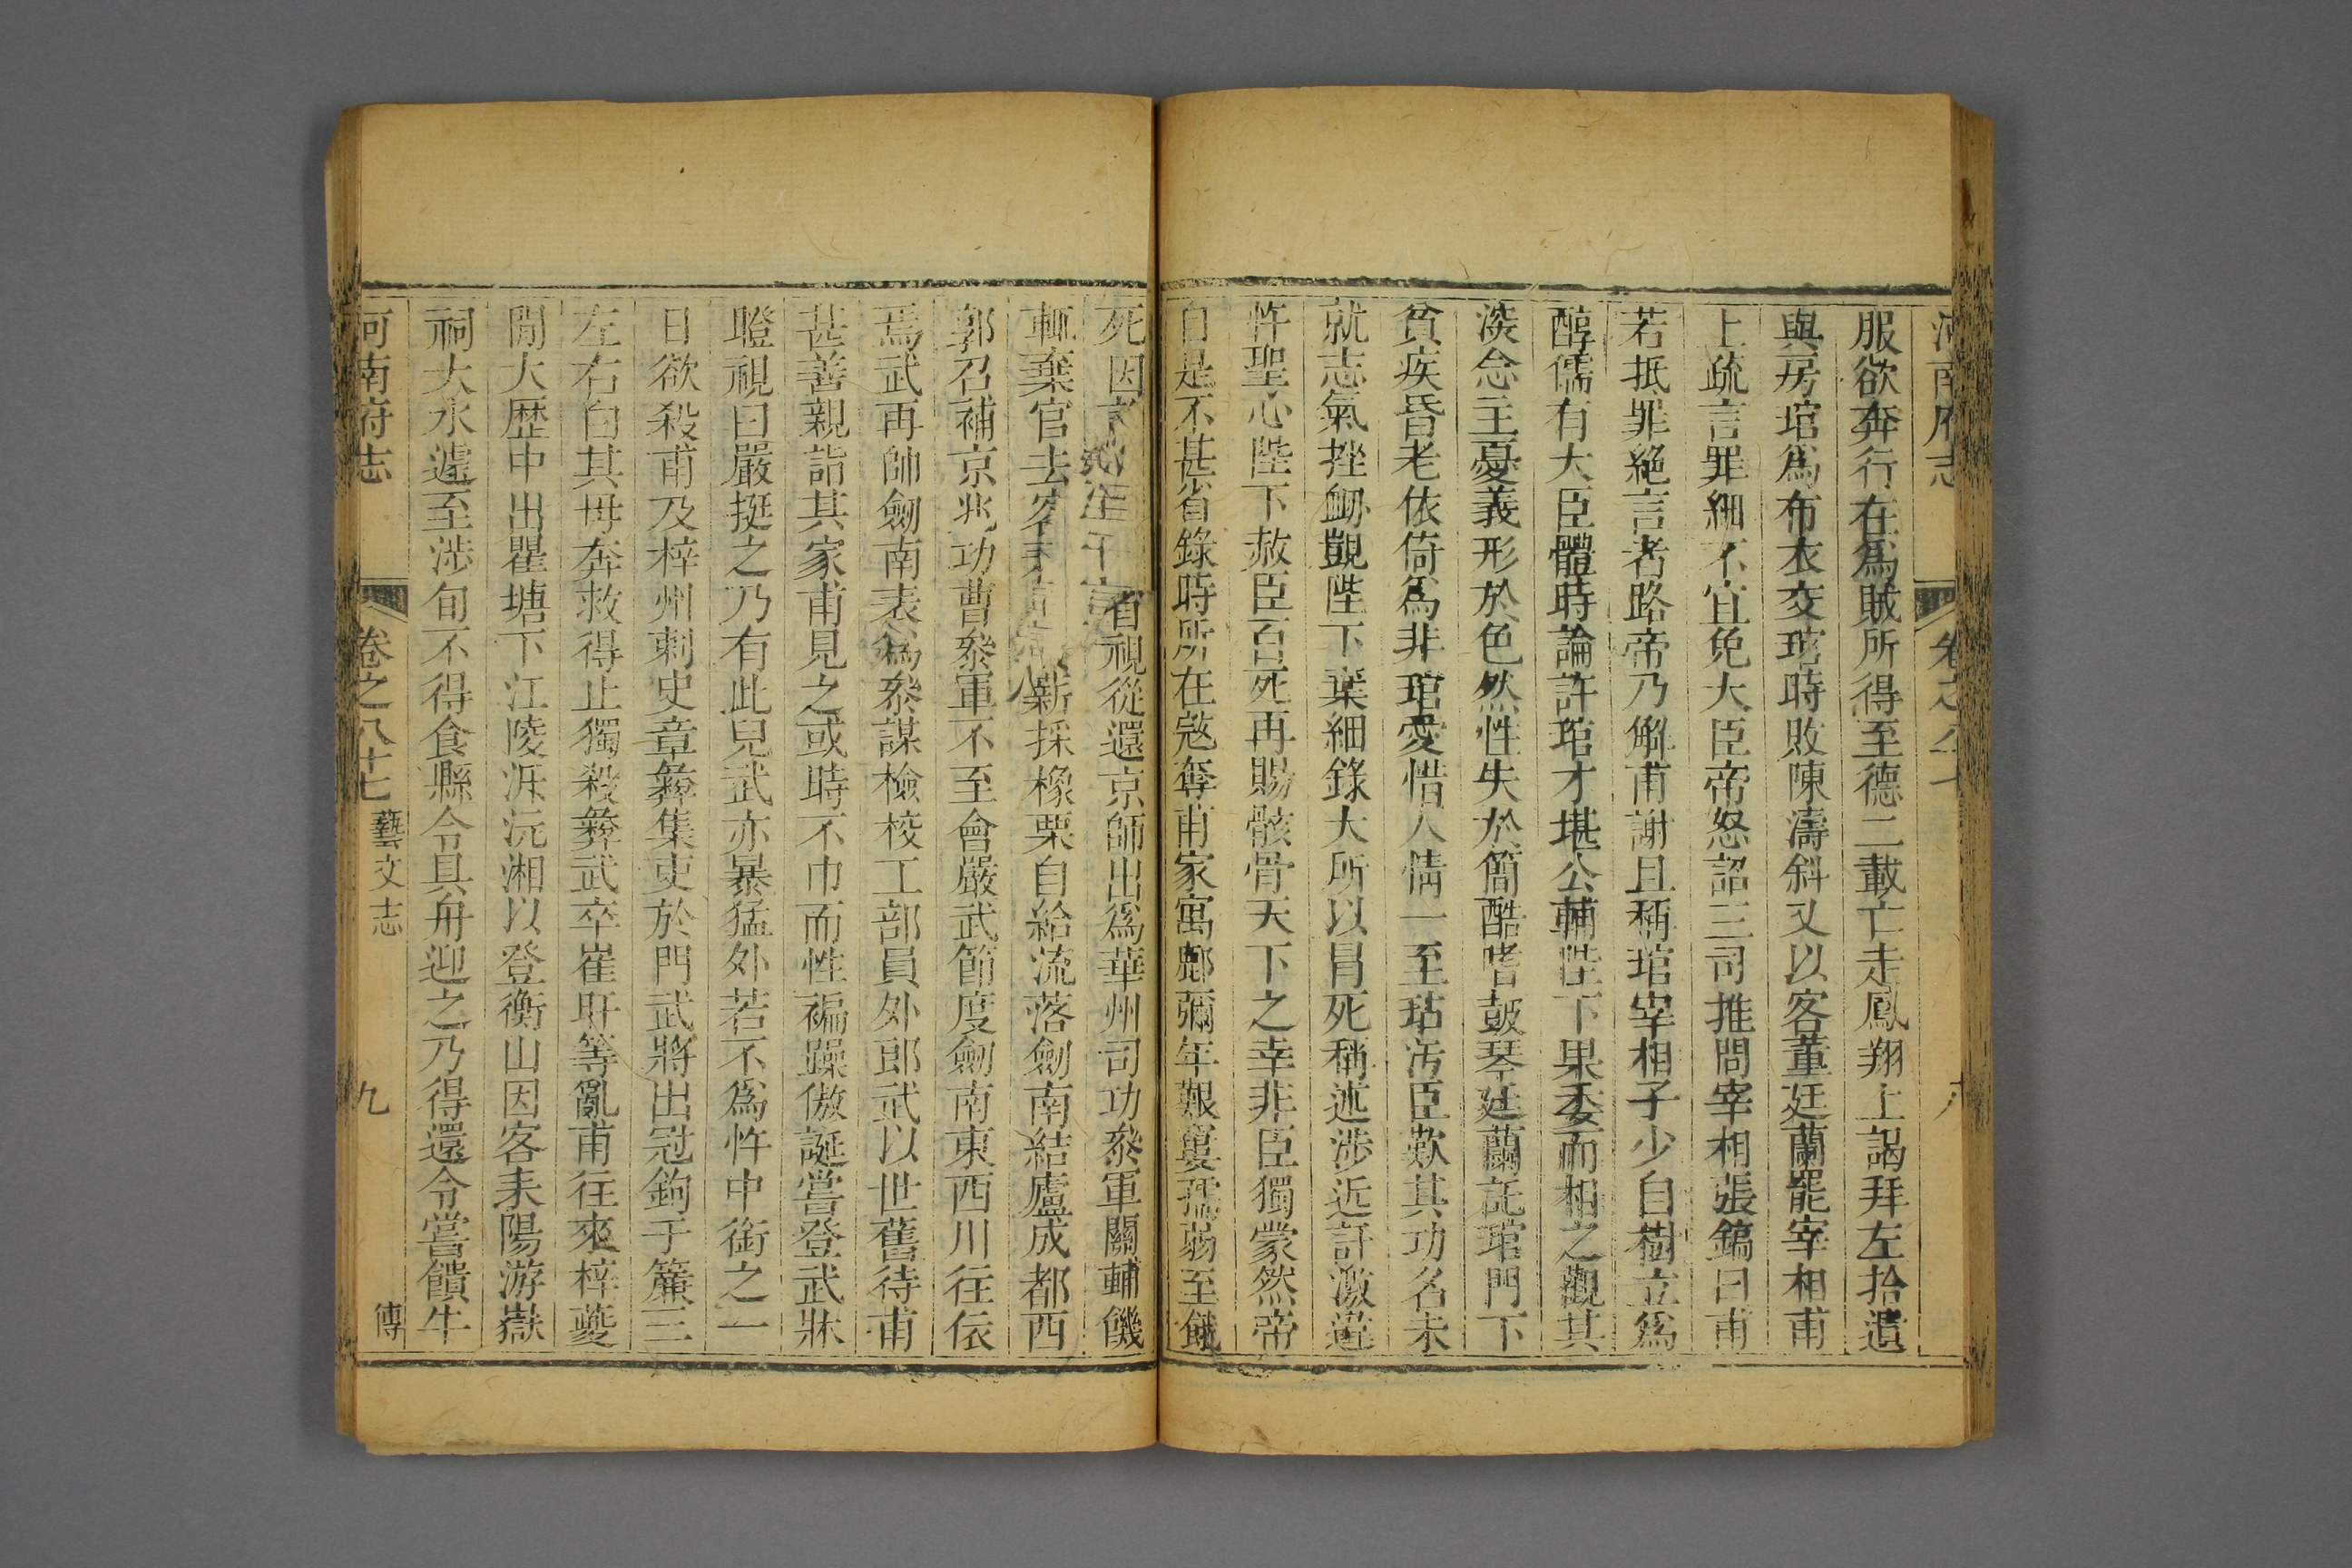 服欲奔行在爲賊所得至德二載亡走鳳翔上謁拜左拾遺
與房琯爲布衣交琯時敗陳濤斜又以客董廷蘭罷宰相甫
上疏言罪細不宜免大臣帝怒詔三司推問宰相張鎬曰甫
若抵罪絕言者路帝乃解甫謝且稱琯宰相子少自樹立爲
醇儒有大臣體時論許琯才堪公輔陛下果委而相之觀其
淡念主憂義形於色然性失於簡酷嗜鼓琴廷蘭託琯門下
貧疾昏老依倚爲非琯愛惜人情一至玷汚臣歎其功名未
就志氣挫衂覬陛下棄細錄大所以冐死稱述涉近訐激違
忤聖心陛下赦臣百死再賜骸骨天下之幸非臣獨蒙然帝
自是不甚省錄時所在宼奪甫家寓鄜彌年艱窶孺弱至餓
死因省視從還京師出爲華州司功叅軍關輔饑
輒棄官去客薪採橡栗自給流落劒南結廬成都西
郭召補京兆功曹叅軍不至會嚴武節度劒南東西川往依
焉武再帥劒南表爲叅謀檢校工部員外郎武以世舊待甫
甚善親詣其家甫見之或時不巾而性褊躁傲誕嘗登武牀
瞪視曰嚴挺之乃有此兒武亦暴猛外若不爲忤中銜之一
日欲殺甫及梓州刺史章彝集吏於門武將出冠鉤于簾三
左右白其母奔救得止獨殺彝武卒崔旰等亂甫往來梓夔
閒大歷中出瞿塘下江陵泝沅湘以登衡山因客耒陽游嶽
祠大水遽至涉旬不得食縣令具舟迎之乃得還令嘗饋牛
河南府志 卷之八十七 藝文志 九 傳